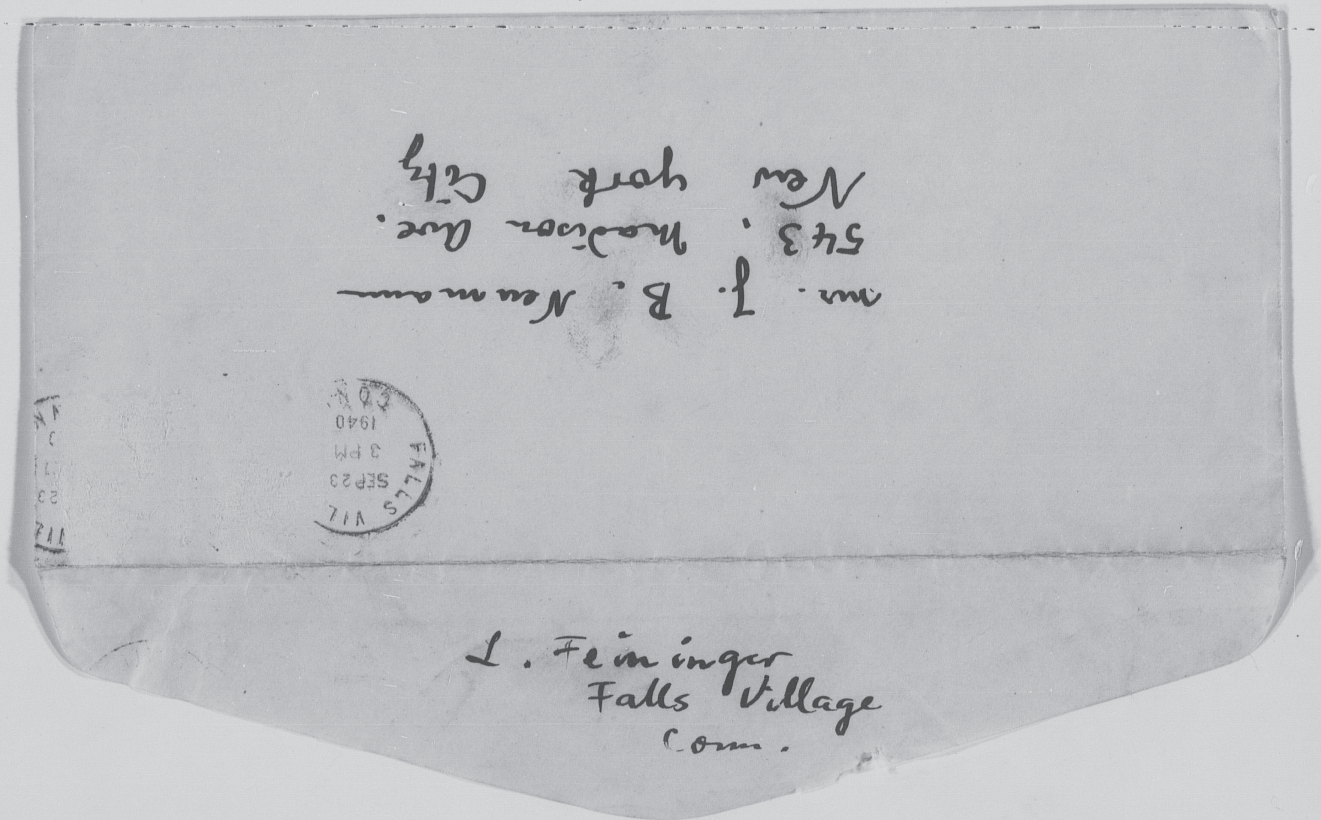 Mr. J. B. Neumann
543, Madison Ave.
New York City
FALLS VIL
SEP 23
3 PM
1940
CON
L. Feininger
Falls Village
Conn.